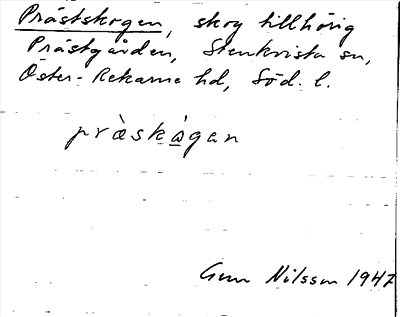 Prästskogen, skog tillhörig
Prästgården, Stenkvista sn,
Öster-Rekarne hd, Söd. l.
præ̀skàgan
Gun Nilsson 1947